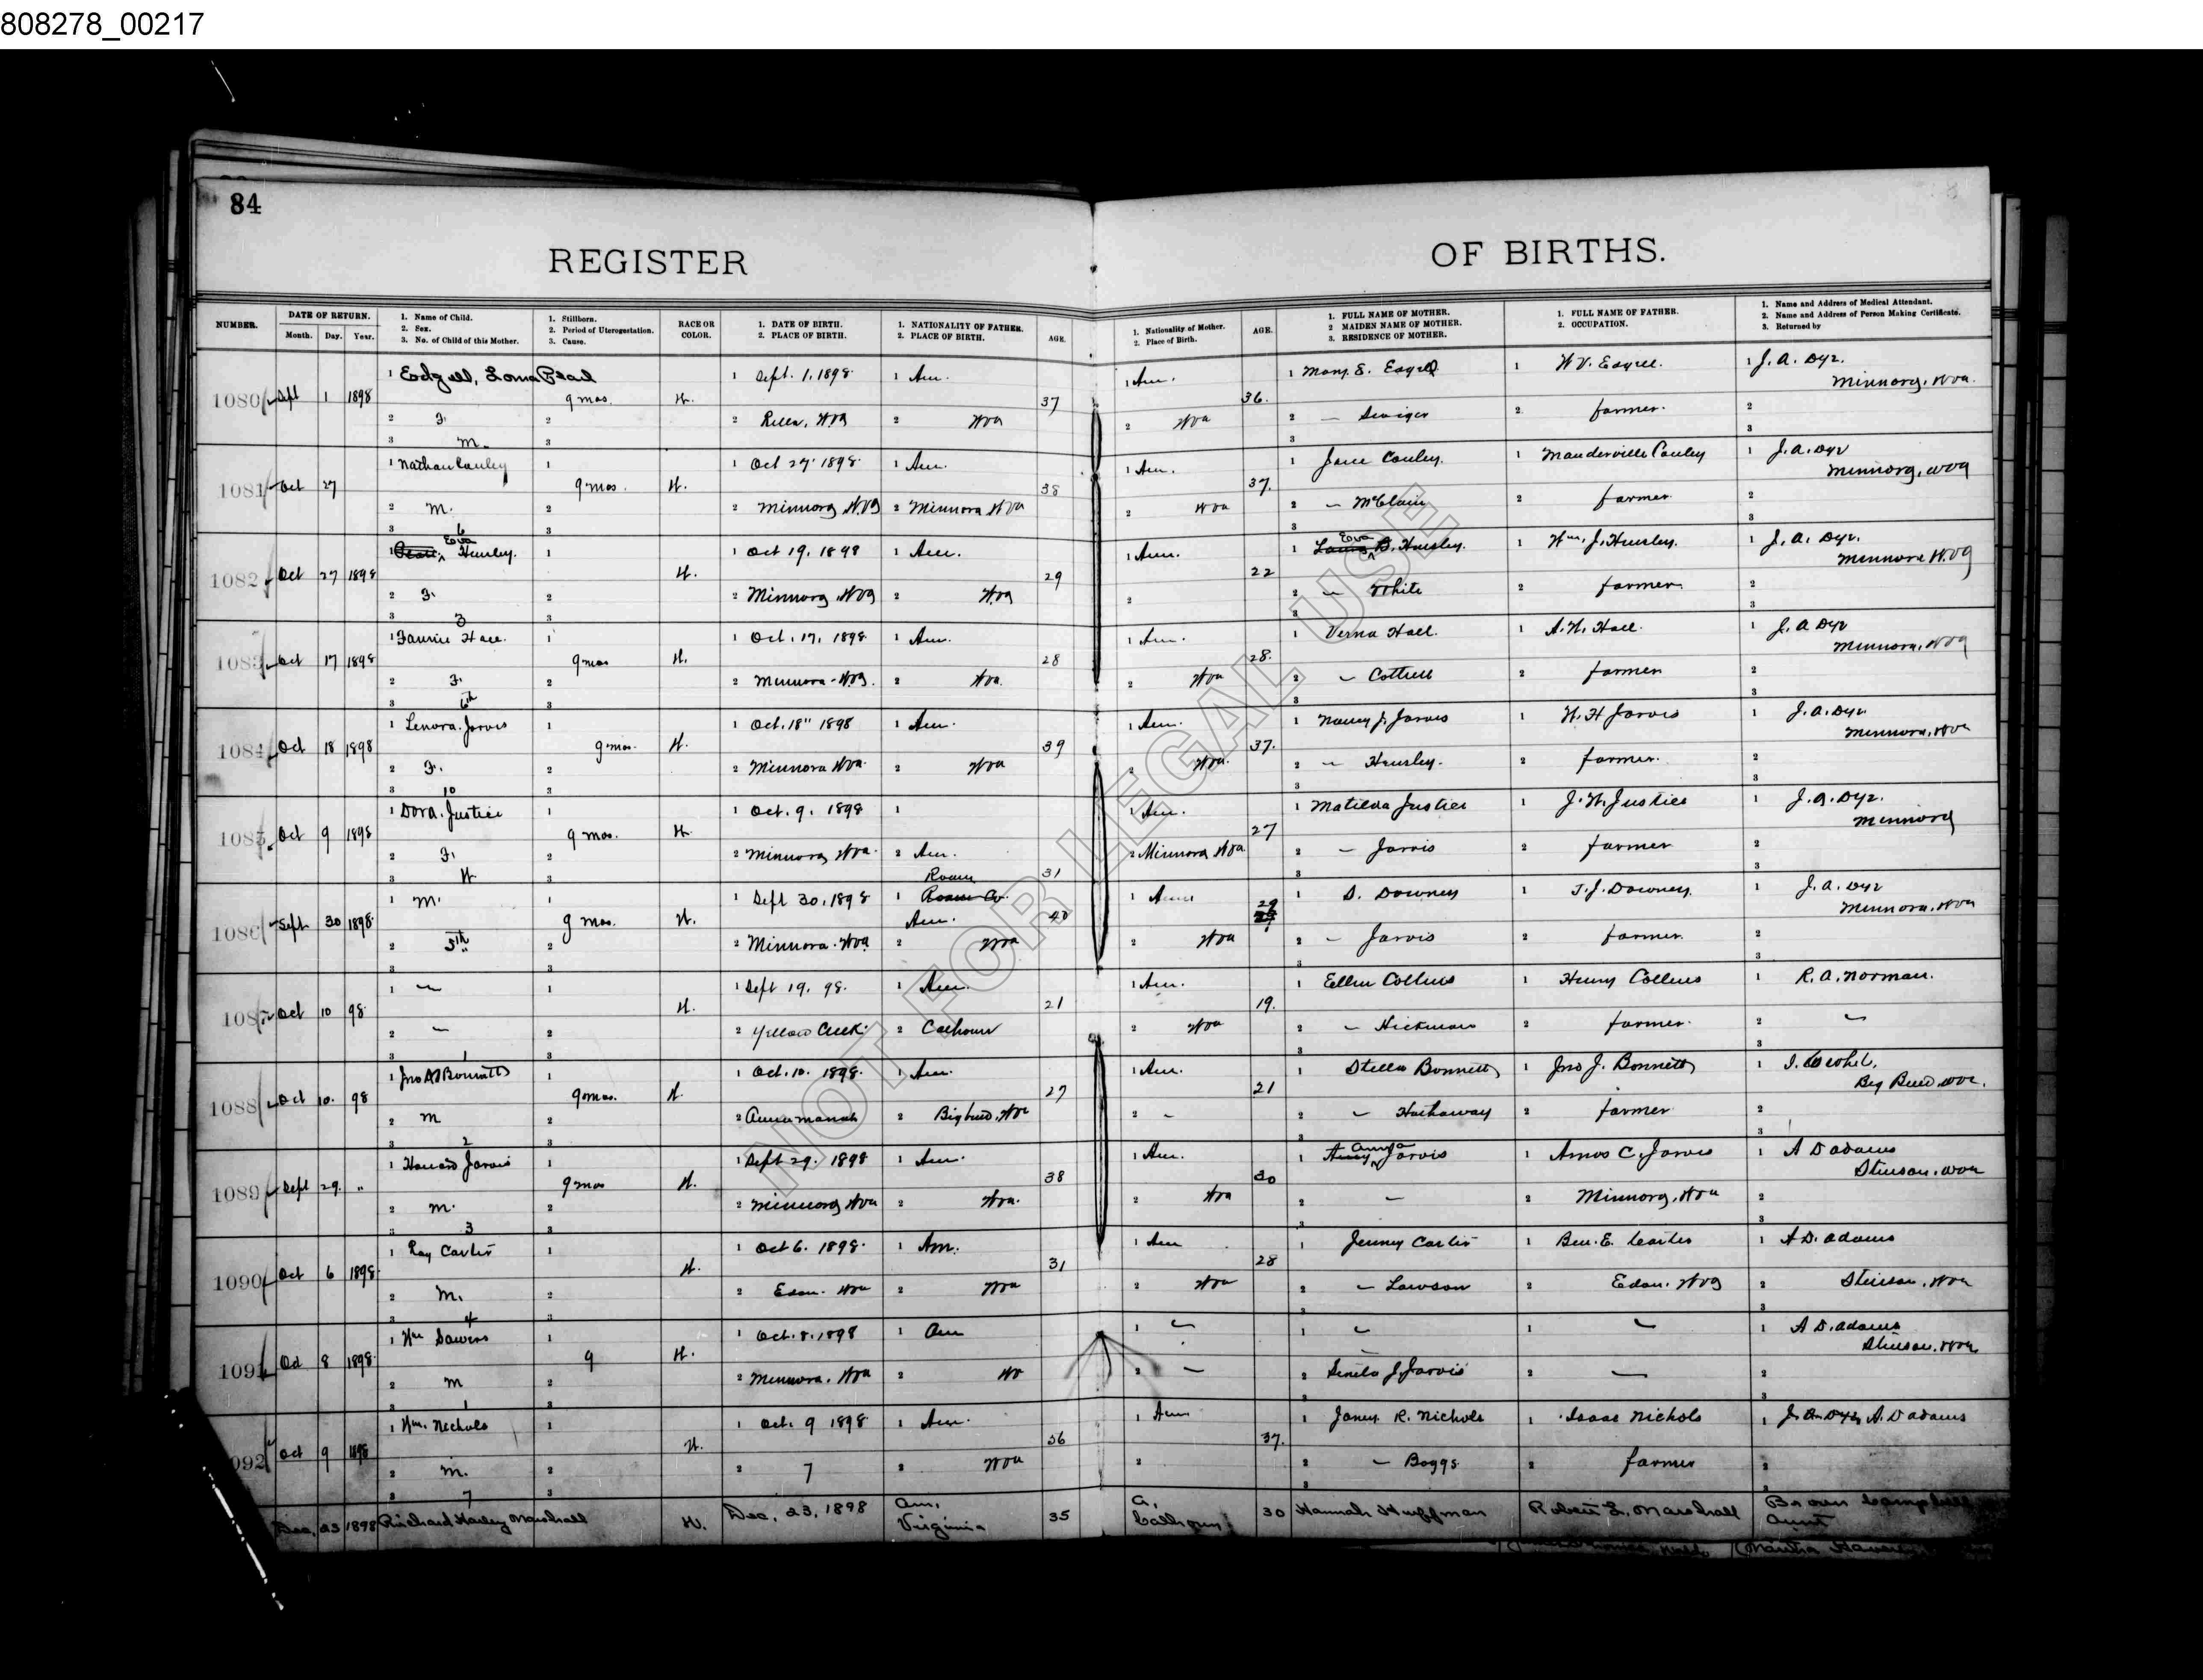 808278_00217
84
REGISTER OF BIRTHS.
NUMBER. DATE OF RETURN. Month. Day. Year. 1. Name of Child. 2. Sex. 3. No. of Child of this Mother. 1. Stillborn. 2. Period of Uterogestation. 3. Cause. RACE OR COLOR. 1. DATE OF BIRTH. 2. PLACE OF BIRTH. 1. NATIONALITY OF FATHER. 2. PLACE OF BIRTH. AGE. 1. Nationality of Mother. 2. Place of Birth. AGE. 1. FULL NAME OF MOTHER. 2 MAIDEN NAME OF MOTHER. 3. RESIDENCE OF MOTHER. 1. FULL NAME OF FATHER. 2. OCCUPATION. 1. Name and Address of Medical Attendant. 2. Name and Address of Person Making Certificate. 3. Returned by
1 Edgell, Loma Pearl 1 Sept. 1, 1898 1 Am. 1 Am. 1 Mary. E. Edgell 1 W V. Edgell. 1 J. A. Dye.
Minnora, W va.
1080 Sept 1 1898 9 mos. W. 37 36.
2 F. 2 2 Rella, W Va 2 W va 2 W va 2 — Swiger 2 farmer. 2
3 m. 3 3 3
1 Nathan Conley 1 1 Oct 27 1898 1 Am. 1 Am. 1 Jane Conley. 1 Manderville Conley 1 J. A. Dye
Minnora, W va
1081 Oct 27 9 mos. W. 38 37.
2 m. 2 2 Minnora W. Va 2 Minnora W Va 2 W va 2 — McClain 2 farmer 2
3 6 3 3 3
Eva Eva
1 Pearl Hensley. 1 1 Oct 19, 1898 1 Am. 1 Am. 1 B. Hensley. 1 Wm. J. Hensley. 1 J. A. Dye.
Minnora W. Va
1082 Oct 27 1898 W. 29 22
2 F. 2 2 Minnora, W Va 2 W. va 2 2 — White 2 farmer 2
3 3 3 3 3
1 Fannie Hall. 1 1 Oct. 17, 1898 1 Am. 1 Am. 1 Verna Hall. 1 A. W. Hall. 1 J. A Dye
Minnora, W Va
1083 Oct 17 1898 9 mos W. 28 28.
2 F. 2 2 Minnora - W Va. 2 W va. 2 W va 2 — Cottrell 2 farmer 2
3 6th 3 3 3
1 Lenora. Jarvis 1 1 Oct. 18" 1898 1 Am. 1 Am. 1 Nancy J. Jarvis 1 W. H Jarvis 1 J. A. Dye.
Minnora, W va
1084 Oct 18 1898 9 mos. W. 39 37.
2 F. 2 2 Minnora W va. 2 W va 2 W va. 2 — Hensley. 2 farmer. 2
3 10 3 3 3
1 Dora. Justice 1 1 Oct. 9, 1898 1 1 Am. 1 Matilda Justice 1 J. W. Justice 1 J. A. Dye.
Minnora
1085 Oct 9 1898 9 mos. W. 31 27
2 F. 2 2 Minnora W va. 2 Am. 2 Minnora W va 2 — Jarvis 2 farmer 2
3 3 3 3
Roane
1 M. 1 1 Sept 30, 1898 1 Roane Co. 1 Am 1 S. Downey 1 T. J. Downey. 1 J. A. Dye
Am. Minnora, W va
1086 Sept 30 1898 9 mos. W. 40 29
2 5th 2 2 Minnora. W va 2 W va 2 W va 2 — Jarvis 2 farmer 2
3 3 3 3
1 — 1 1 Sept 19. 98. 1 Am. 1 Am. 1 Ellen Collins 1 Henry Collins 1 R. A. Norman.
1087 Oct 10 98 W. 21 19.
2 — 2 2 Yellow Creek. 2 Calhoun 2 W va 2 — Hickman 2 farmer. 2 —
3 1 3 3 3
1 Jno Bonnett 1 1 Oct. 10. 1898. 1 Am. 1 Am. 1 Stella Bonnett 1 Jno J. Bonnett 1
Big Bend W va.
1088 Oct 10. 98 9 mos. W. 27 21
2 M 2 2 Annamoriah 2 Big bend, W va 2 — 2 — Hathaway 2 farmer 2
3 2 3 3 3
1 Howard Jarvis 1 1 Sept 29. 1898 1 Am. 1 Am. 1 Amy Anna Jarvis 1 Amos C. Jarvis 1 A D Adams
Stinson, W va
1089 Sept 29. " 9 mos W. 38 30
2 m. 2 2 Minnora W va 2 W va. 2 W va 2 — 2 Minnora, W va 2
3 3 3 3 3
1 Ray Carter 1 1 Oct 6. 1898. 1 Am. 1 Am 1 Jenny Carter 1 Ben. E. Carter 1 A D. Adams
1090 Oct 6 1898 W. 31 28
2 M. 2 2 Eden. W va 2 W va 2 W va 2 — Lawson 2 Eden. W va 2 Stinson, W va
3 4 3 3 3
1 Wm Sawers 1 1 Oct. 8. 1898 1 Am 1 — 1 — 1 — 1 A D. Adams
Stinson, W va
1091 Oct 8 1898 9 W.
2 M 2 2 Minnora. W va 2 W 2 — 2 J. Jarvis 2 — 2
3 1 3 3 3
1 Wm. Nichols 1 1 Oct. 9 1898 1 Am. 1 Am 1 Janey. R. Nichols 1 Isaac Nichols 1 J. A. Dye, A. D Adams
092 Oct 9 1898 W. 36 37.
2 M. 2 2 7 2 W va 2 2 — Boggs 2 farmer 2
3 7 3 3
Dec. 23 1898 Richard Harley Marshall W. Dec. 23, 1898 Am. Virginia 35 A. Calhoun 30 Hannah Huffman Robert E. Marshall Brown Campbell Aunt
NOT FOR LEGAL USE